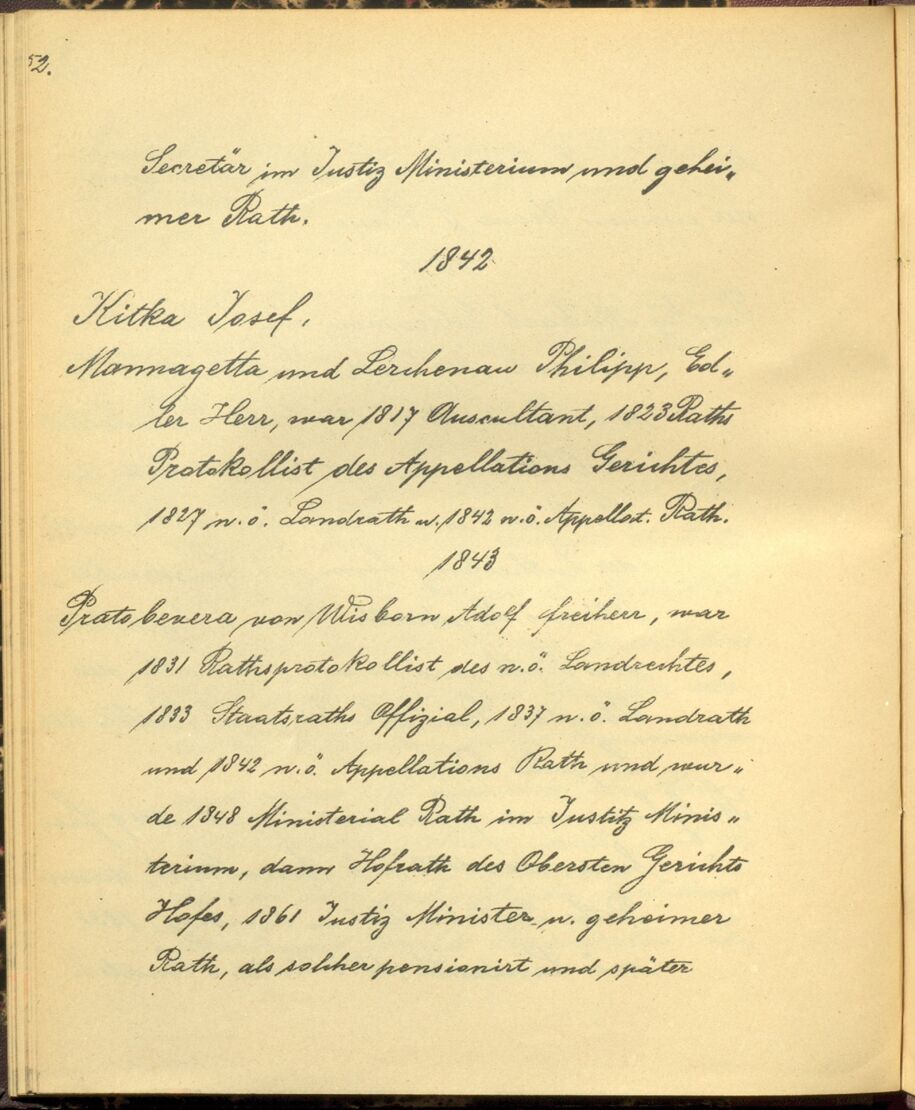 52.
Secretär im Justiz Ministerium und gehei„
mer Rath.
1842
Kitka Josef.
Mannagetta und Lerchenau Philipp, Ed„
ler Herr, war 1817 Auscultant, 1823 Raths
Protokollist des Appellations Gerichtes,
1827 n. ö. Landrath u. 1842 n. ö. Appellat. Rath.
1843
Pratobevera von Wisborn Adolf freiherr, war
1831 Rathsprotokollist des n. ö. Landrechtes,
1833 Staatsraths Offizial, 1837 n. ö. Landrath
und 1842 n. ö. Appellations Rath und wur„
de 1848 Ministerial Rath im Justitz Minis„
terium, dann Hofrath des Obersten Gerichts
Hofes, 1861 Justiz Minister u. geheimer
Rath, als solcher pensionirt und später